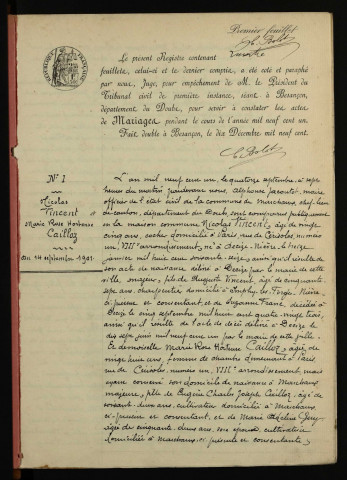 Premier feuillet
Le présent Registre contenant
feuillets, celui-ci et le dernier compris, a été coté et paraphé
par nous, Juge, pour empêchement de M. le Président du
Tribunal civil de première instance, séant à Besançon,
département du Doubs, pour servir à constater les actes
de Mariages pendant le cours de l'année mil neuf cent un.
Fait double à Besançon, le dix Décembre mil neuf cent.
N° 1
Nicolas
Vincent et
Marie Rose Hortense
Cailloz
du 14 septembre 1901
L'an mil neuf cent un le quatorze septembre, à sept
heures du matin, pardevant nous, Alphonse Jacoutot, maire
officier de l'état civil de la commune de Marchaux, chef-lieu
de canton, département du Doubs, sont comparus publiquement
en la maison commune Nicolas Vincent, âgé de vingt
cinq ans, domicilié à Paris, rue de Cérisoles, numéro
un VIIIe arrondissement, né à Decize-Nièvre le treize
janvier mil huit cent soixante-seize, ainsi qu'il résulte de
son acte de naissance délivré à Decize par le maire de cette
ville, majeur, fils de Auguste Vincent, âgé de cinquante-
sept ans, charpentier domicilié à Imphy, les Forges, Nièvre
ci-présent et consentant, et de Suzanne Franc, décédée à
Decize le cinq septembre mil huit cent quatre-vingt-trois,
ainsi qu'il résulte de l'acte de décès délivré à Decize le
dix sept juin mil neuf cent un par le maire de cette ville.
Et demoiselle Marie Rose Hortense Cailloz, âgée de
vingt-huit ans, femme de chambre demeurant à Paris
rue de Cérisoles, numéro un, VIIIe arrondissement, mais
ayant conservé son domicile de naissance à Marchaux
majeure, fille de Eugène Charles Joseph Cailloz, âgé de
soixante-deux ans, cultivateur domicilié à Marchaux,
ci-présent et consentant, et de Marie Adeline
âgée de cinquante-deux ans, son épouse, cultivatrice
domiciliée à Marchaux, ci présente et consentante;